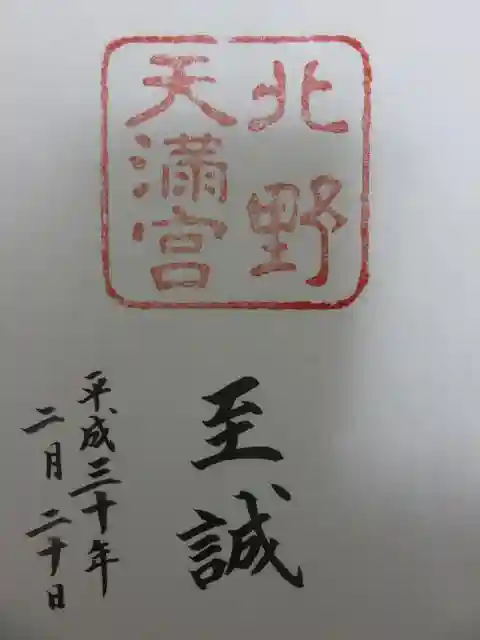 北野
天満宮
至誠
平成三十年
二月二十日